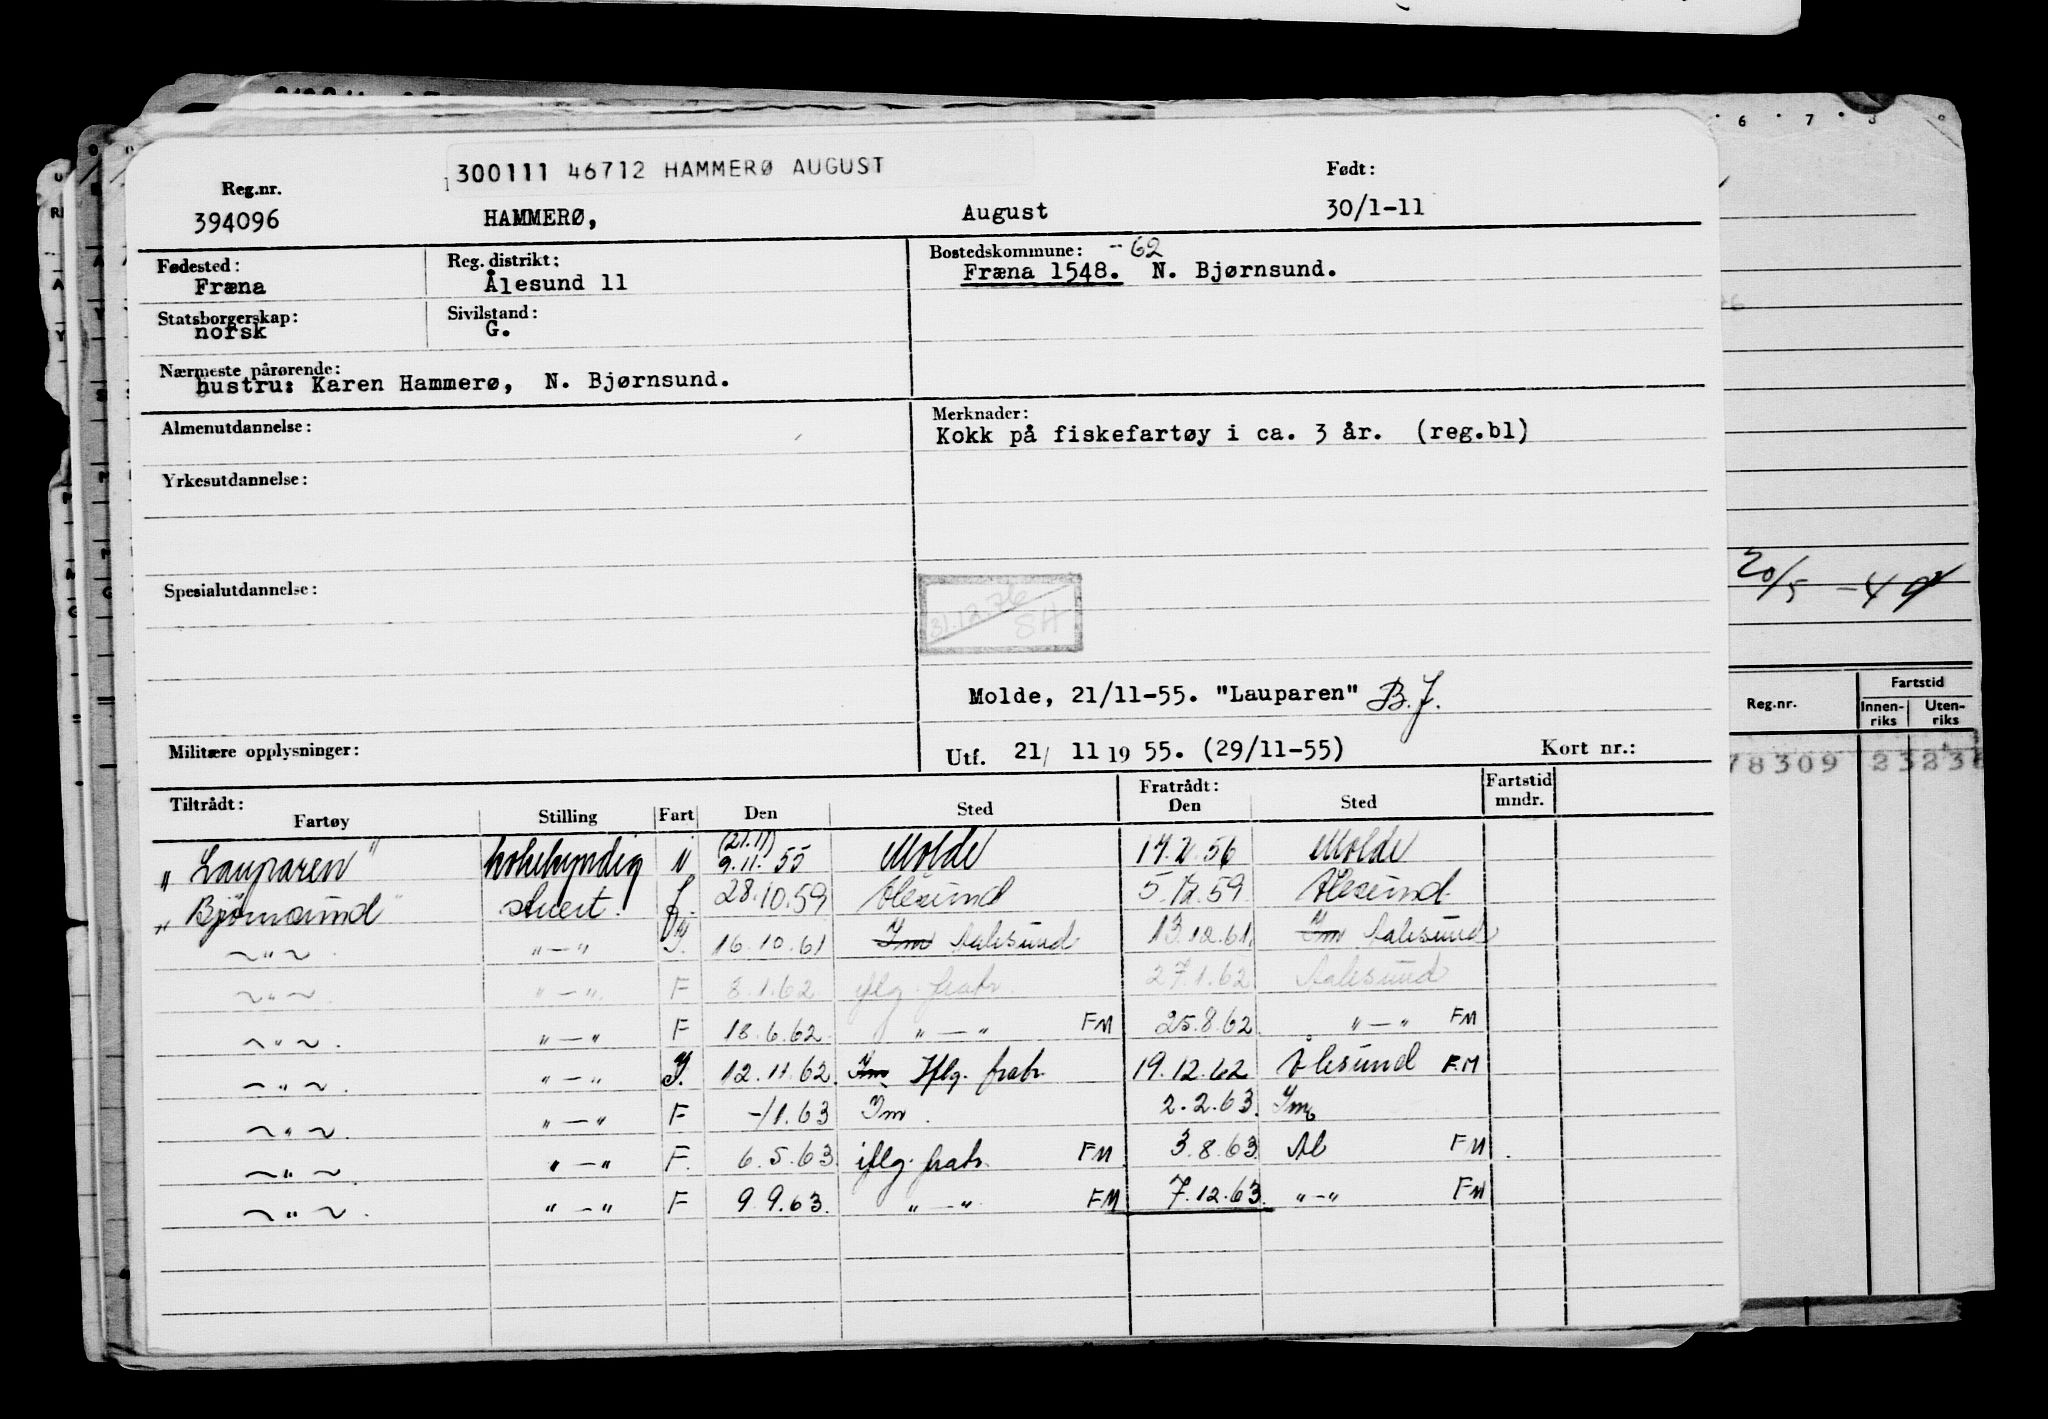 300111 46712 HAMMERØ AUGUST
Reg.nr. Født:
394096 HAMMERØ, August 30/1-11
Fødested: Reg. distrikt: Bostedskommune: -62
Fræna Ålesund 11 Fræna 1548. N. Bjørnsund.
Statsborgerskap: Sivilstand:
norsk G.
Nærmeste pårørende:
hustru: Karen Hammerø, N. Bjørnsund.
Almenutdannelse: Merknader:
Kokk på fiskefartøy i ca. 3 år. (reg.bl)
Yrkesutdannelse:
Spesialutdannelse:
31.12.76
SH
20/5 -49
Molde, 21/11-55. "Lauparen" B.J.
Militære opplysninger: Utf. 21/ 11 19 55. (29/11-55) Kort nr.:
Reg.nr. Fartstid
Innen-riks Uten-riks
78309 23236
Tiltrådt: Fratrådt: Fartstid mndr.
Fartøy Stilling Fart Den Sted Den Sted
(21.11)
"Lauparen" kokekyndig N 9.11.55 Molde Molde
"Bjørnsund" stuert. 28.10.59 Ålesund 5.12.59 Ålesund
~"~. "-" 16.10.61 Im Aalesund 13.12.61. Im Aalesund
~"~. "-". F 8.1.62 iflg. fratr. 27.1.62 Aalesund
~"~. "-" F 18.6.62. "-" FM 25.8.62. "-" FM
~"~. "-" I. 12.11.62. Im Iflg. fratr. 19.12.62 Ålesund F.M
~"~. "-" F -/1.63 Im. 2.2.63. Im
~"~. "-" F. 6.5.63 iflg. fratr. FM 3.8.63. Ål FM
~"~. "-" F 9.9.63. "-" FM 7.12.63. "-" FM